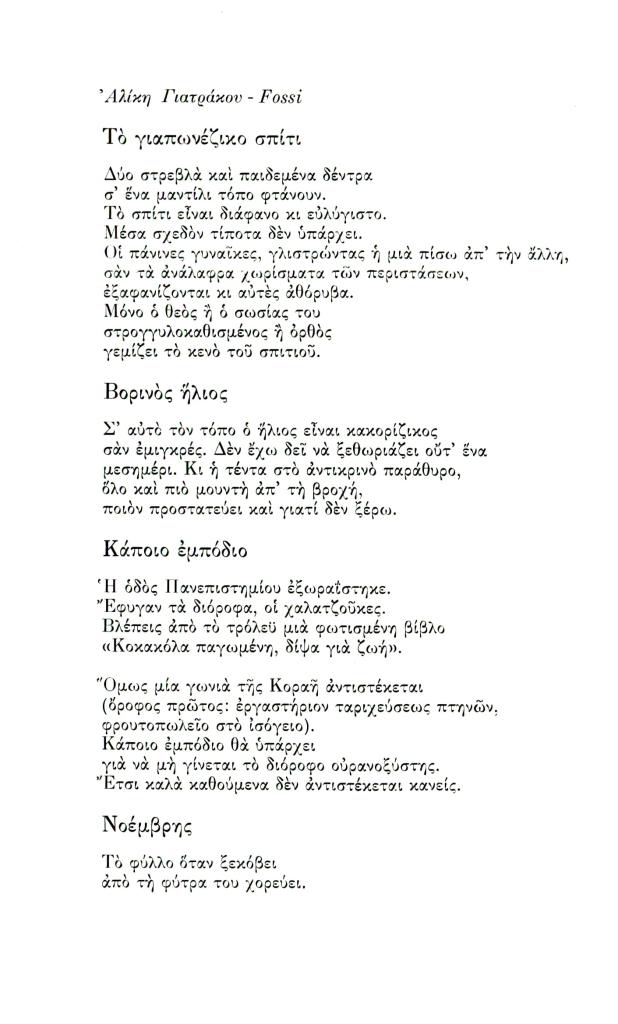 Ἀλίκη Γιατράκου - Fossi
Τὸ γιαπωνέζικο σπίτι
Δύο στρεβλὰ καὶ παιδεμένα δέντρα
σ' ἕνα μαντίλι τόπο φτάνουν.
Τὸ σπίτι εἶναι διάφανο κι εὐλύγιστο.
Μέσα σχεδὸν τίποτα δὲν ὑπάρχει.
Οἱ πάνινες γυναῖκες, γλιστρώντας ἡ μιὰ πίσω ἀπ' τὴν ἄλλη,
σὰν τὰ ἀνάλαφρα χωρίσματα τῶν περιστάσεων,
ἐξαφανίζονται κι αὐτὲς ἀθόρυβα.
Μόνο ὁ θεὸς ἢ ὁ σωσίας του
στρογγυλοκαθισμένος ἢ ὀρθὸς
γεμίζει τὸ κενὸ τοῦ σπιτιοῦ.
Βορινὸς ἥλιος
Σ' αὐτὸ τὸν τόπο ὁ ἥλιος εἶναι κακορίζικος
σὰν ἐμιγκρές. Δὲν ἔχω δεῖ νὰ ξεθωριάζει οὔτ' ἕνα
μεσημέρι. Κι ἡ τέντα στὸ ἀντικρινὸ παράθυρο,
ὅλο καὶ πιὸ μουντὴ ἀπ' τὴ βροχή,
ποιὸν προστατεύει καὶ γιατί δὲν ξέρω.
Κάποιο ἐμπόδιο
Ἡ ὁδὸς Πανεπιστημίου ἐξωραΐστηκε.
Ἔφυγαν τὰ διόροφα, οἱ χαλατζοῦκες.
Βλέπεις ἀπὸ τὸ τρόλεϋ μιὰ φωτισμένη βίβλο
«Κοκακόλα παγωμένη, δίψα γιὰ ζωή».
Ὅμως μία γωνιὰ τῆς Κοραῆ ἀντιστέκεται
(ὄροφος πρῶτος: ἐργαστήριον ταριχεύσεως πτηνῶν,
φρουτοπωλεῖο στὸ ἰσόγειο).
Κάποιο ἐμπόδιο θὰ ὑπάρχει
γιὰ νὰ μὴ γίνεται τὸ διόροφο οὐρανοξύστης.
Ἔτσι καλὰ καθούμενα δὲν ἀντιστέκεται κανείς.
Νοέμβρης
Τὸ φύλλο ὅταν ξεκόβει
ἀπὸ τὴ φύτρα του χορεύει.